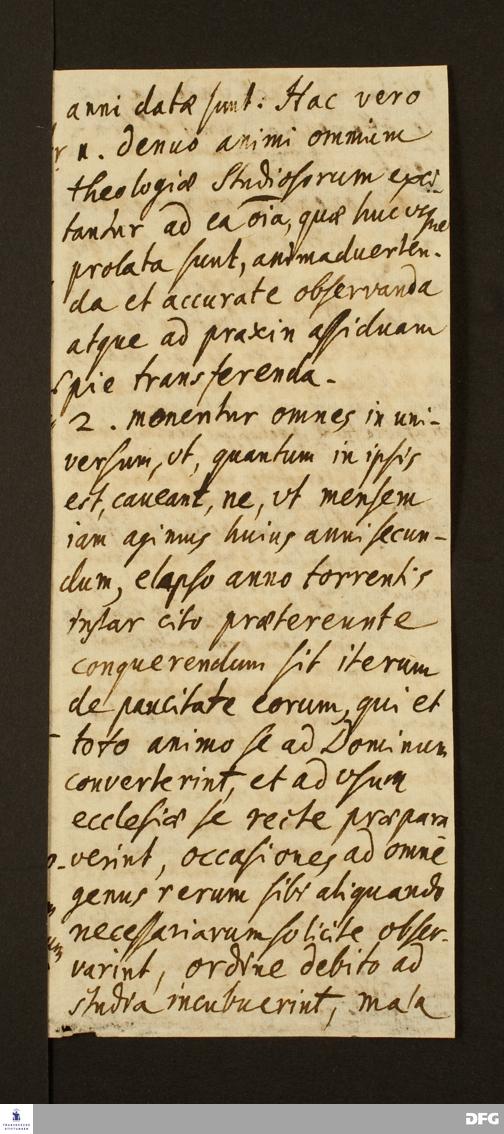 anni datæ sunt. Hac vero
n. denuo animi omnium
theologiæ Studiosorum exci-
tantur ad ea o͞ia, quæ huc vsque
prolata sunt, animaduerten-
da et accurate observanda
atque ad praxin assiduam
pie transferenda.
2. monentur omnes in uni-
versum, vt, quantum in ipsis
est, caveant, ne, vt mensem
iam agimus huius anni secun-
dum, elapso anno torrentis
instar cito prætereunte
conquerendum sit iterum
de paucitate eorum, qui et
toto animo se ad Dominum
converterint, et ad vsum
ecclesiæ se recte præpara
verint, occasiones ad omnē
genus rerum sibi aliquando
necessariarum solicite obser-
varint, ordine debito ad
studia incubuerint, mala
FRANCKESCHE
STIFTUNGEN
DFG